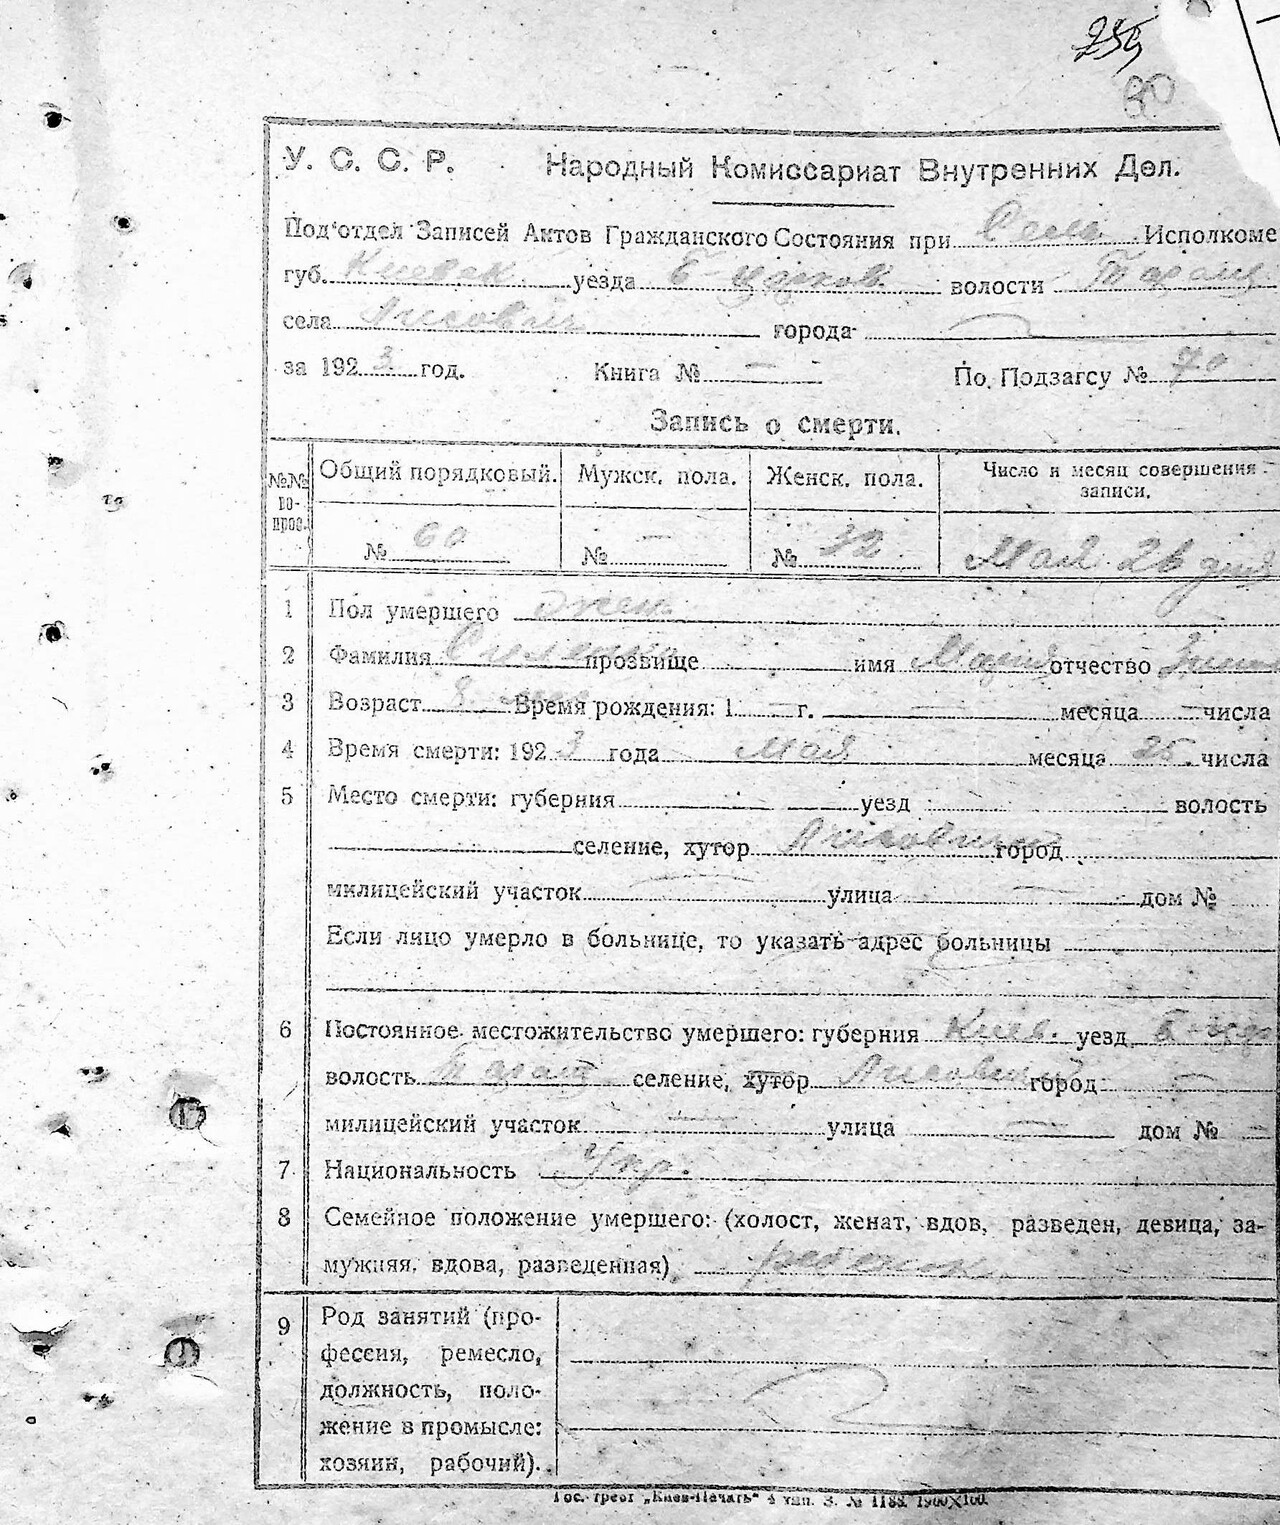 80
У. С. С. Р. Народный Комиссариат Внутренних Дел.
Под'отдел Записей Актов Гражданского Состояния при Сель. Исполкоме
губ. Киевск. уезда Б-церков. волости Таращ.
села города
за 1923 год. Книга № — По. Подзагсу № 70
Запись о смерти.
№№ во-прос. Общий порядковый. Мужск. пола. Женск. пола. Число и месяц совершения записи.
№ 60 № — № 32 Мая 26 дня
1 Пол умершего жен.
2 Фамилия прозвище имя Мария отчество
3 Возраст 8 Время рождения: 1 — г. — месяца — числа
4 Время смерти: 1923 года Мая месяца 25 числа
5 Место смерти: губерния уезд волость
селение, хутор город
милицейский участок улица дом №
Если лицо умерло в больнице, то указать адрес больницы
6 Постоянное местожительство умершего: губерния Киев. уезд Б-цер
волость Таращ селение, хутор город —
милицейский участок — улица — дом № —
7 Национальность Укр.
8 Семейное положение умершего: (холост, женат, вдов, разведен, девица, за-
мужняя, вдова, разведенная) ребенок
9 Род занятий (про-
фессия, ремесло,
должность, поло-
жение в промысле:
хозяин, рабочий).
Гос. трест „Киев-Печать" 4 тип. З. № 1182 1900×100.